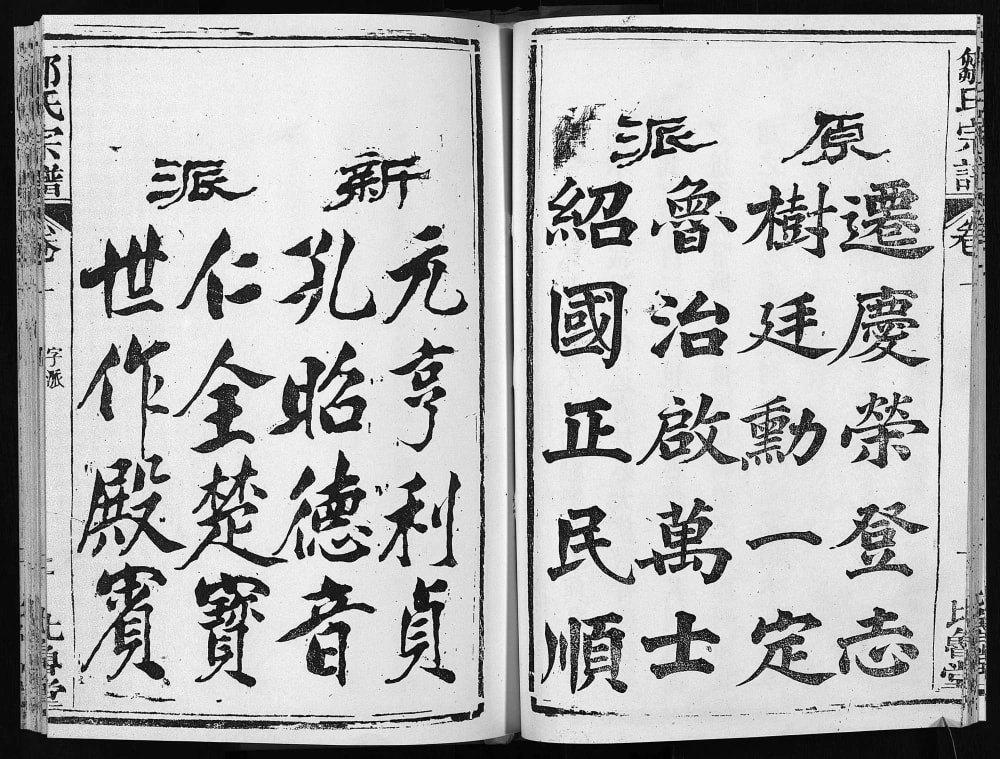 鄒氏宗譜
卷一
一
比魯堂
原派
遷慶榮登志
樹廷勳一定
魯治啟萬士
紹國正民順
新派
元亨利貞
孔昭德音
仁全楚寶
世作殿賓
氏宗譜
卷一
字派
二